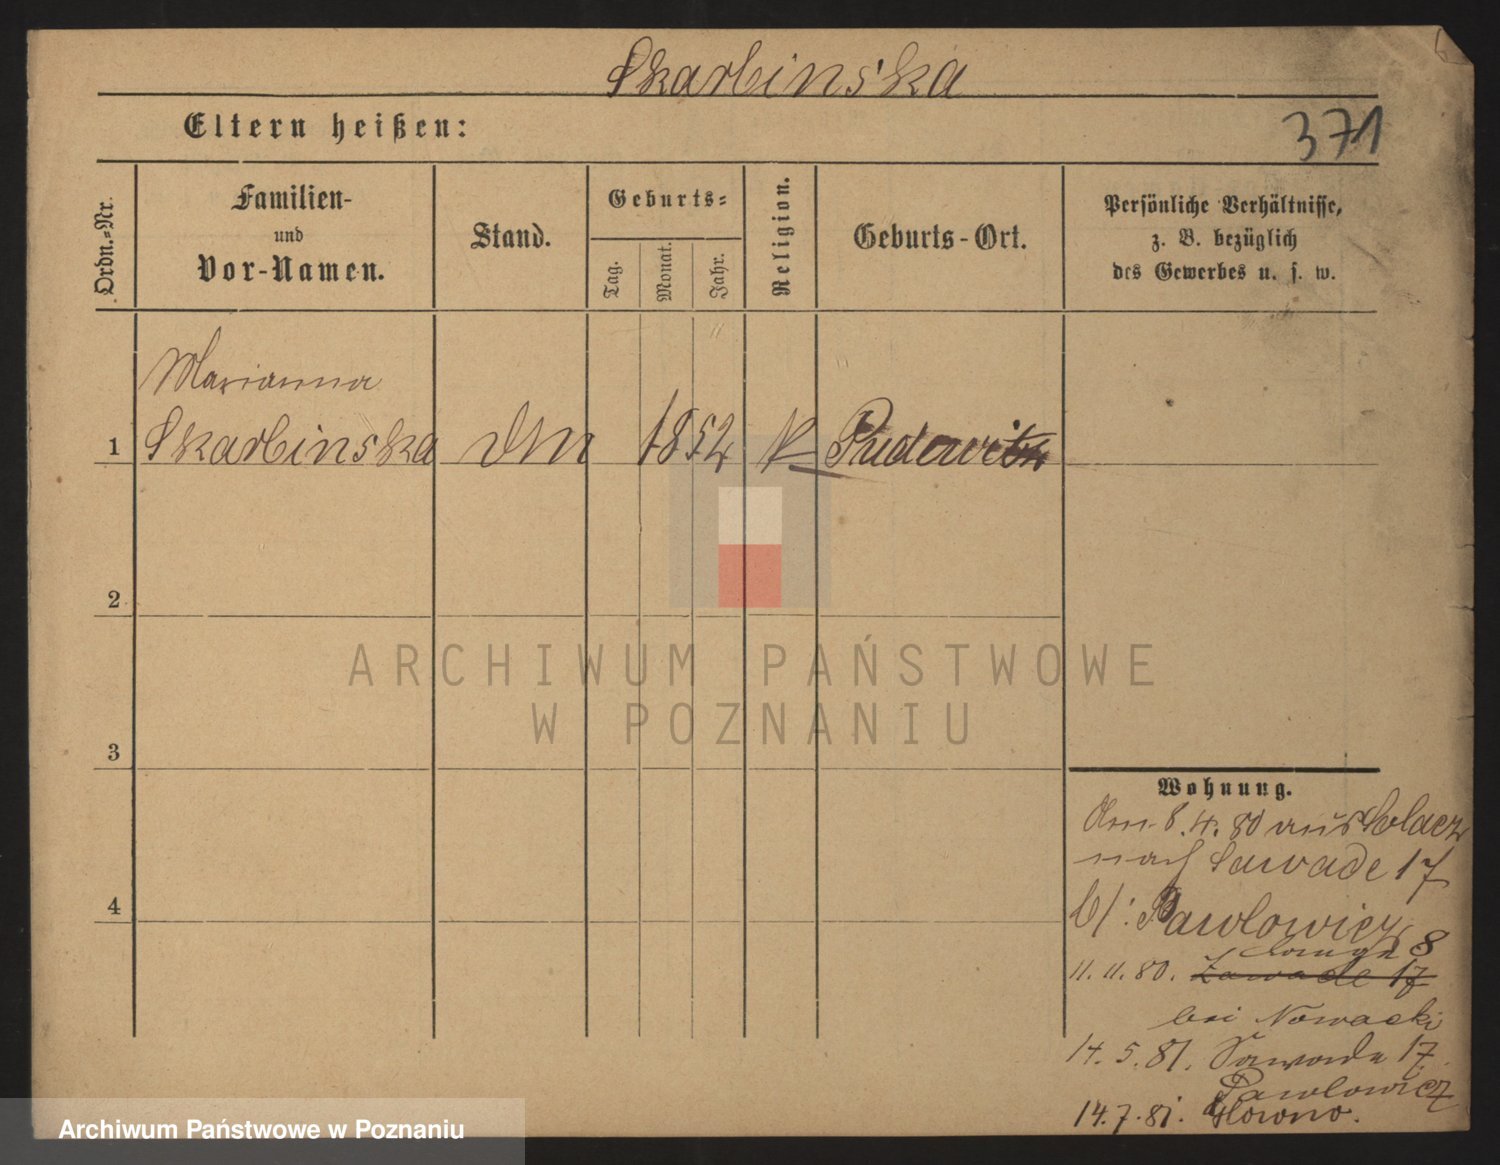 Skarbinska
Eltern heißen:
371
Ordn.-Nr.
Familien-
und
Vor-Namen.
Stand.
Geburts-
Tag.
Monat.
Jahr.
Religion.
Geburts-Ort.
Persönliche Verhältnisse,
z. B. bezüglich
des Gewerbes u. s. w.
Marianna
1 Skarbinska 1852 Pudewitz
2
3
4
ARCHIWUM PAŃSTWOWE
W POZNANIU
Wohnung.
8.4.80 aus Solacz
nach Sawade 17
b/: Pawlowicz
8
11.11.80. Zawade 17
bei Nowacki
14.5.81. Sawade 17
Pawlowicz
14.7.81. Glowno.
Archiwum Państwowe w Poznaniu